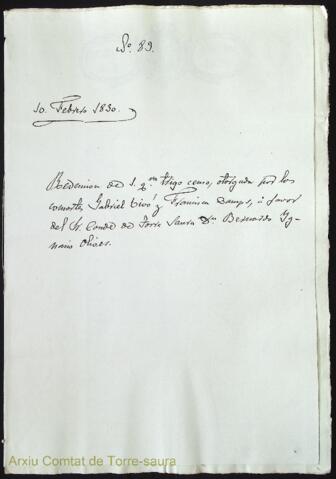 Nº. 89.
10. Febrero 1830.
Redencion de 1. qra. trigo censo, otorgada por los
consortes Gabriel Vivó y Francisca Camps, á favor
del Sr. Conde de Torre Saura Dn. Bernardo Yg-
nacio Olives.
Arxiu Comtat de Torre-saura